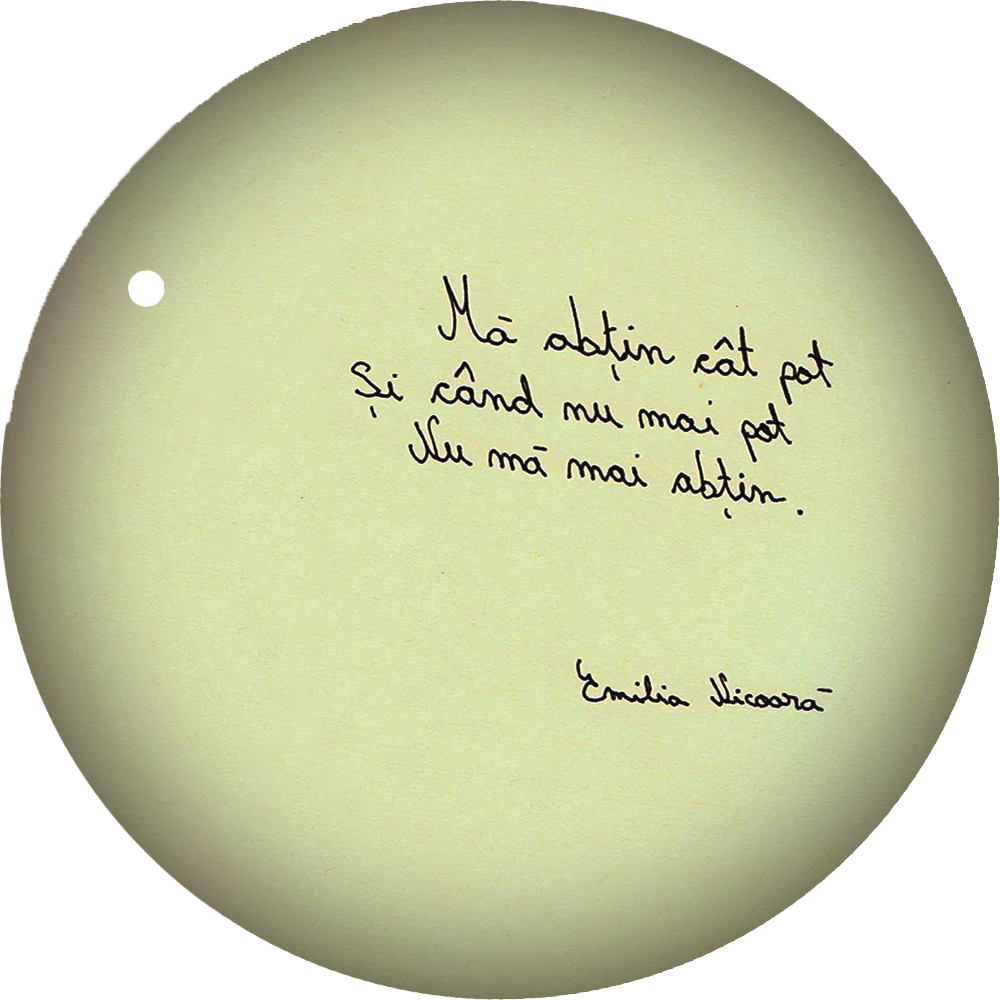 Mă abțin cât pot
Și când nu mai pot
Nu mă mai abțin.
Emilia Nicoară